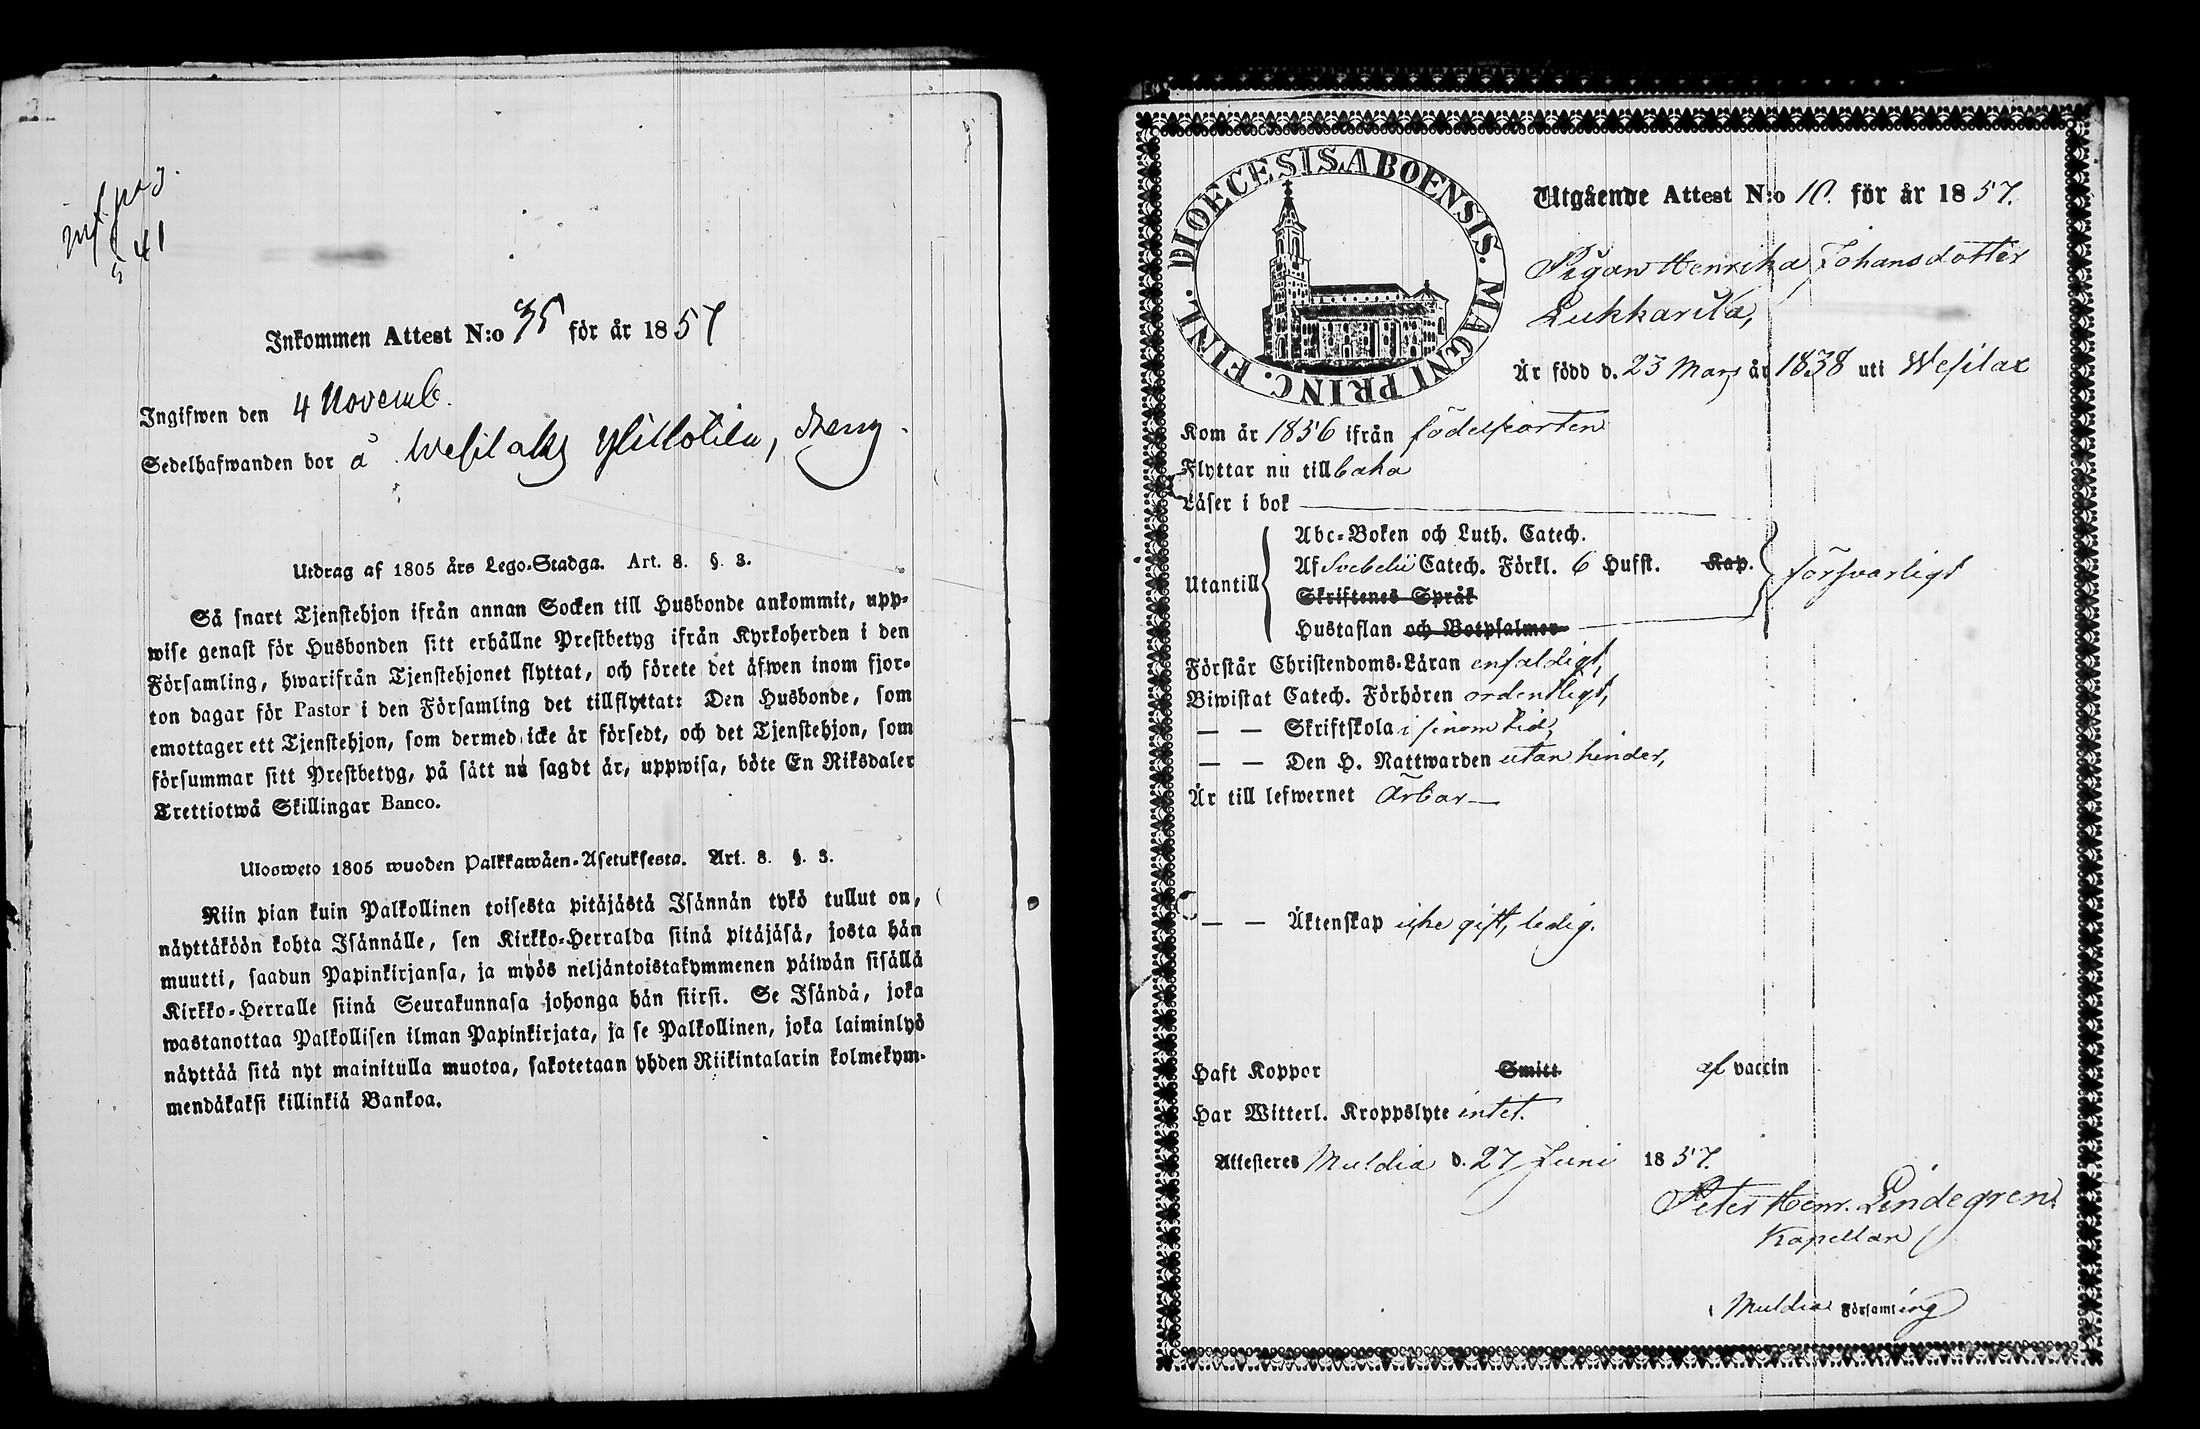 pag.
541
Inkommen Attest N:o 35 för år 1857
Ingifwen den 4 Novemb.
Sedelhafwanden bor å Wesilaks Ylitlotila, dreng.
Utdrag af 1805 års Lego-Stadga. Art. 8. §. 3.
Så snart Tjenstehjon ifrån annan Socken till Husbonde ankommit, upp-
wise genast för Husbonden sitt erhållne Prestbetyg ifrån Kyrkoherden i den
Församling, hwarifrån Tjenstehjonet flyttat, och förete det äfwen inom fjor-
ton dagar för Pastor i den Församling det tillflyttat: Den Husbonde, som
emottager ett Tjenstehjon, som dermed icke är försedt, och det Tjenstehjon, som
försummar sitt Prestbetyg, på sätt nu sagdt är, uppwisa, böte En Riksdaler
Trettiotwå Skillingar Banco.
Ulosweto 1805 wuoden Palkkawäen-Asetuksesta. Art. 8. §. 3.
Niin pian kuin Palkollinen toisesta pitäjästä Isännän tykö tullut on,
näyttäköön kohta Isännälle, sen Kirkko-Herralda siinä pitäjäsä, josta hän
muutti, saadun Papinkirjansa, ja myös neljäntoistakymmenen päiwän sisällä
Kirkko-Herralle siinä Seurakunnasa johonga hän siirsi. Se Isändä, joka
wastanottaa Palkollisen ilman Papinkirjata, ja se Palkollinen, joka laiminlyö
näyttää sitä nyt mainitulla muotoa, sakotetaan yhden Riikintalarin kolmekym-
mendäkaksi killinkiä Bankoa.
DIOECESIS ABOENSIS. MAGNI PRINC. FINL.
Utgående Attest N:o 10. för år 1857.
Pigan Henrika Johansdotter
Lukkarila,
Är född d. 23 Mars år 1838 uti Wesilax
Kom år 1856 ifrån födelseorten
Flyttar nu tillbaka
Läser i bok
Utantill
Abc-Boken och Luth. Catech.
Af Svebelii Catech. Förkl. 6 Hufst. Kap.
Skriftenes Språk
Hustaflan och Botpsalmer
försvarligt
Förstår Christendoms-Läran enfaldigt,
Biwistat Catech. Förhören ordentligt,
— — Skriftskola i sinom tid,
— — Den H. Nattwarden utan hinder,
Är till lefwernet ärbar —
— — Äktenskap icke gift, ledig.
Haft Koppor Smitt af vaccin
Har Witterl. Kroppslyte intet.
Attesteres Muldia d. 27 Juni 1857.
Peter Henr. Lindegren
Kapellan
i Muldia Församling